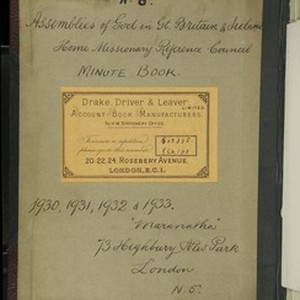 Assemblies of God in Gt. Britain & Ireland
Home Missionary Reference Council
MINUTE BOOK.
Drake, Driver & Leaver, LIMITED.
ACCOUNT BOOK MANUFACTURERS.
To H.M. STATIONERY OFFICE.
To ensure a repetition
please quote this number
20. 22. 24. ROSEBERY AVENUE.
LONDON, E.C.1.
1930, 1931, 1932 & 1933.
"Maranatha"
73 Highbury New Park
London
N. 5.